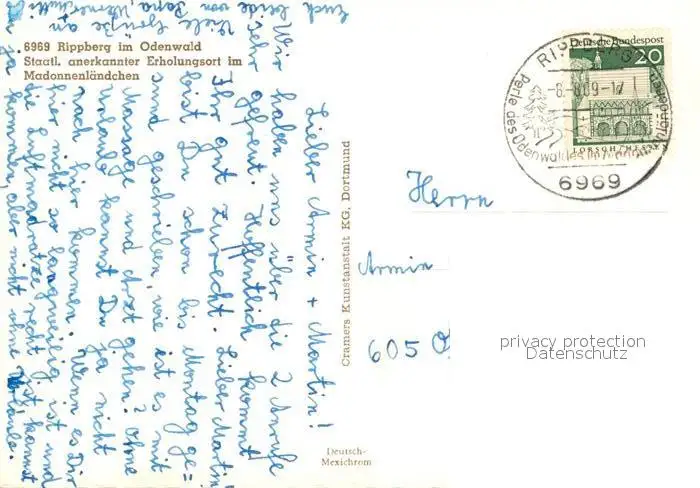 6969 Rippberg im Odenwald
Staatl. anerkannter Erholungsort im
Madonnenländchen
Lieber Armin + Martin!
Wir haben uns über die 2 Anrufe
sehr gefreut. Hoffentlich kommt
Ihr gut zurecht. Lieber Martin
bist Du schon bis Montag ge=
sund geschrieben, wie ist es mit
Massage und Arzt gehen? Ohne
kannst Du ja nicht
nach hier kommen. Wenn es Dir
hier nicht so langweilig ist und
die Luftmadratze recht ist kannst
Du ja kommen, aber nicht ohne
Viele Grüße an
Euch beide von Papa,
Cramers Kunstanstalt KG, Dortmund
Deutsch-
Mexichrom
Deutsche Bundespost
20
LORSCH/HESSEN
RIPPBERG
-8.-8.69-17
Perle des Odenwaldes im
6969
Herrn
Armin
605 O
privacy protection
Datenschutz